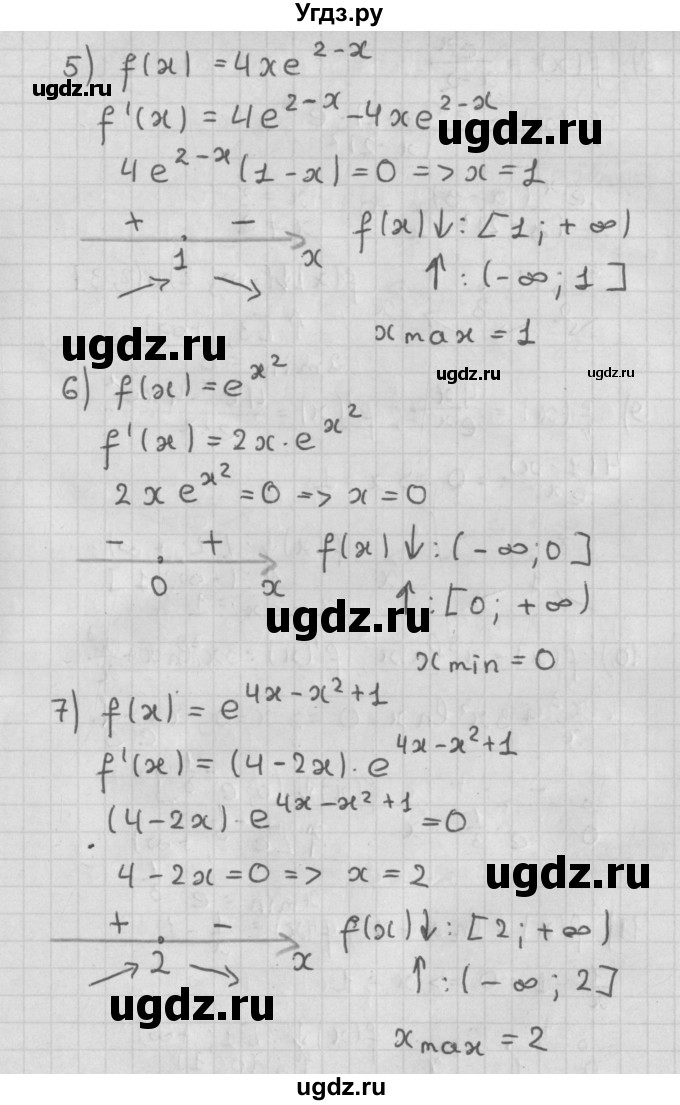 Угдз.ру
5) f(x) = 4xe^{2-x}
ugdz.ru
f'(x) = 4e^{2-x} - 4xe^{2-x}
ugdz.ru
4e^{2-x}(1-x) = 0 => x = 1
+ - f(x)↓: [1; +∞)
1 x ↑: (-∞; 1]
ugdz.ru
x max = 1
ugdz.ru ugdz.ru
6) f(x) = e^{x^2}
f'(x) = 2x · e^{x^2}
2xe^{x^2} = 0 => x = 0
- + f(x)↓: (-∞; 0]
0 x ↑: [0; +∞)
ugdz.ru
x min = 0
7) f(x) = e^{4x-x^2+1}
f'(x) = (4-2x) · e^{4x-x^2+1}
(4-2x) · e^{4x-x^2+1} = 0
4-2x = 0 => x = 2
ugdz.ru
+ - f(x)↓: [2; +∞)
2 x ↑: (-∞; 2]
ugdz.ru
x max = 2
ugdz.ru